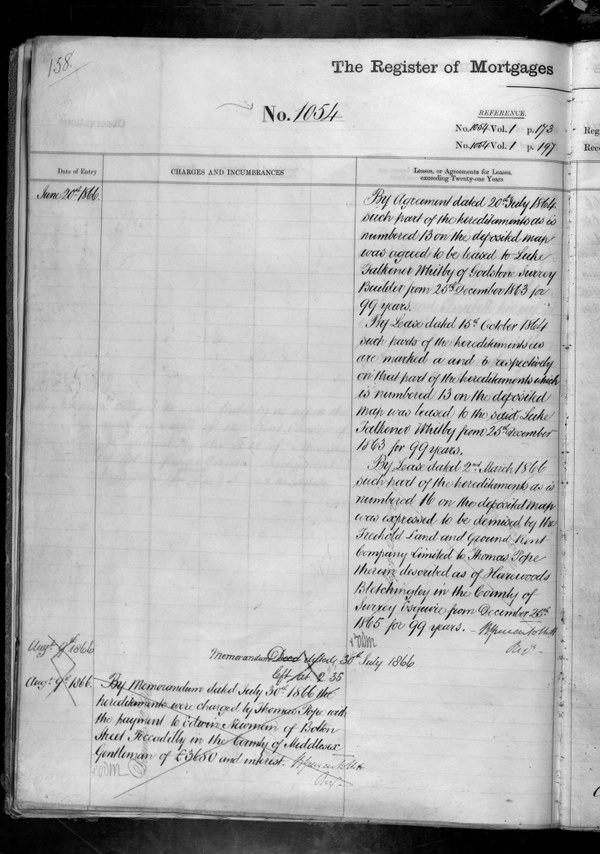 158.
The Register of Mortgages
No. 1054
REFERENCE.
No. 1054 Vol. 1 p. 173
No. 1054 Vol. 1 p. 197
Reg
Rec
Date of Entry
CHARGES AND INCUMBRANCES
Leases, or Agreements for Leases,
exceeding Twenty-one Years
June 20th 1866.
By Agreement dated 20th July 1864
such part of the hereditaments as is
numbered 13 on the deposited map
was agreed to be leased to Luke
Falkener Whitby of Godstone Surrey
Builder from 25th December 1863 for
99 years.
By Lease dated 15th October 1864
such parts of the hereditaments as
are marked a and b respectively
on that part of the hereditaments which
is numbered 13 on the deposited
map was leased to the said Luke
Falkener Whitby from 25th December
1863 for 99 years.
By Lease dated 2nd March 1866
such part of the hereditaments as is
numbered 16 on the deposited map
was expressed to be demised by the
Freehold Land and Ground Rent
Company Limited to Thomas Pope
therein described as of Harewoods
Bletchingley in the County of
Surrey Esquire from December 25th
1865 for 99 years.
Regr
Augt 9th 1866
Memorandum Deed dated 30th July 1866
left at 2 35
Augt 9th 1866.
By Memorandum dated July 30th 1866 the
hereditaments were charged by Thomas Pope with
the payment to Edwin Newman of Bolton
Street Piccadilly in the County of Middlesex
Gentleman of £3650 and interest.
Regr